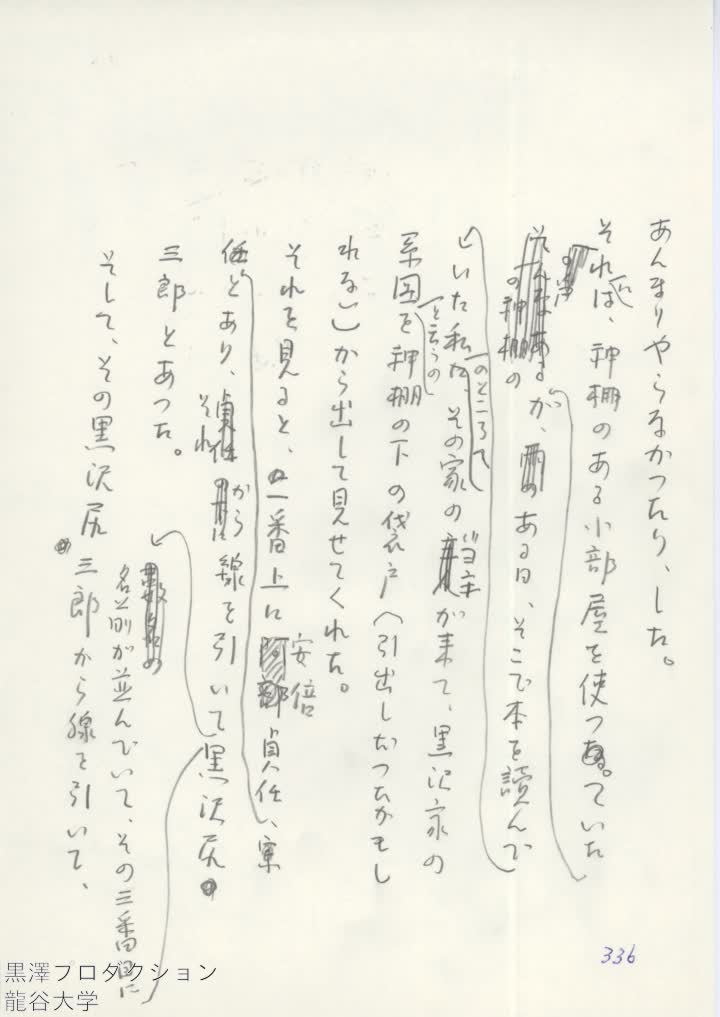 あんまりやらなかつたり、した。
それは、神棚のある小部屋を使つていた
が、ある日、そこで本を読んで
いた私
のところへ
、その家の当主が来て、黒沢家の
系図
と云うの
を神棚の下の袋戸(引出しだつたかもし
れない)から出して見せてくれた。
それを見ると、一番上に安倍貞任、宗
任とあり、それから線を引いて
名前が並んでいて、その三番目に
黒沢尻
三郎とあつた。
そして、その黒沢尻三郎から線を引いて、
336
黒澤プロダクション
龍谷大学